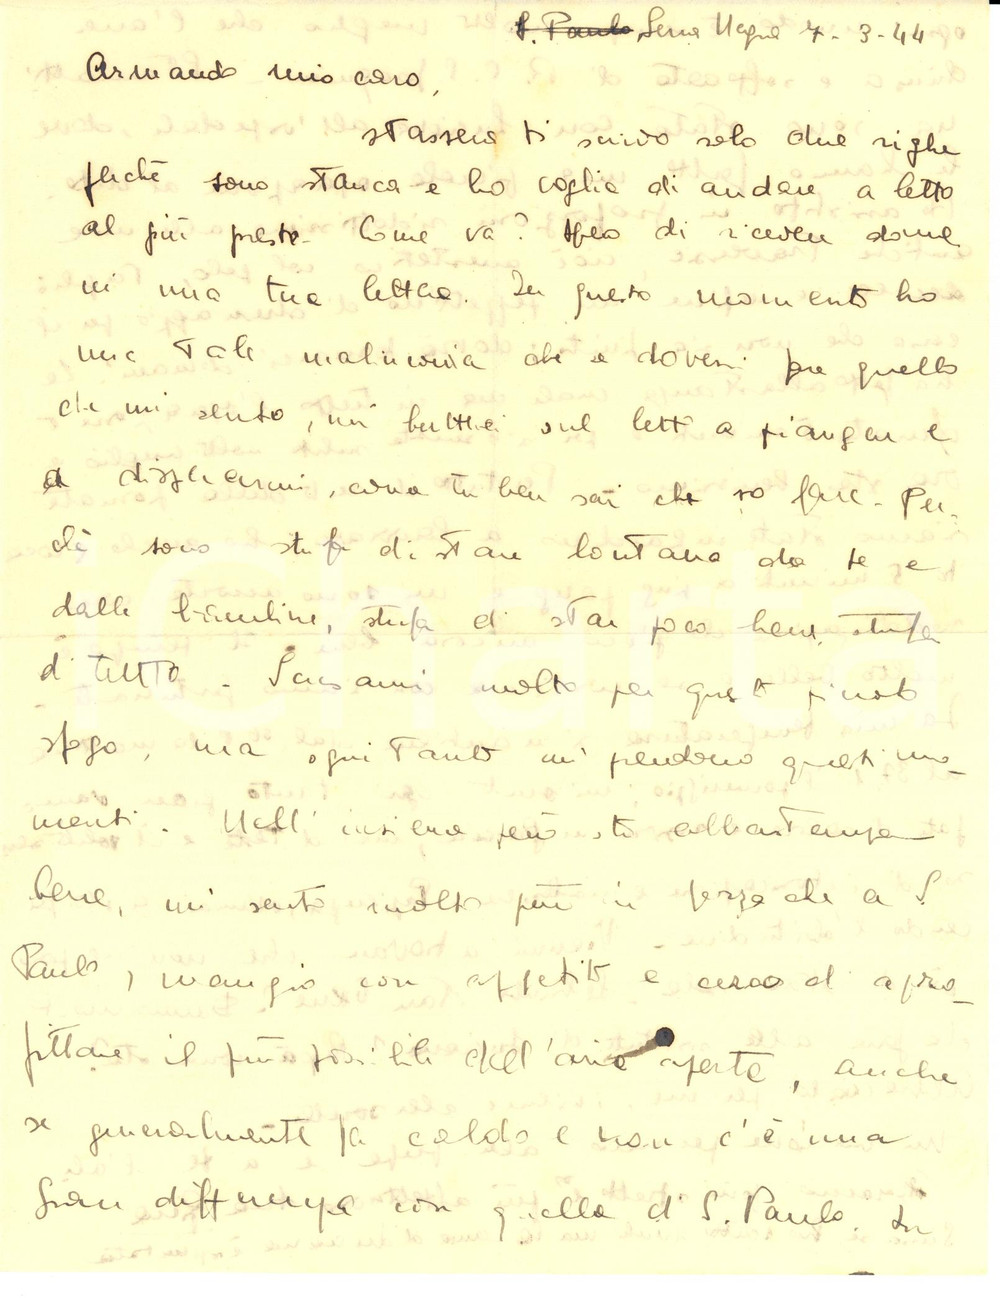 S. Paulo, Serra Negra 7-3-44
Armando mio caro,
stassera ti scrivo solo due righe
perchè sono stanca e ho voglia di andare a letto
al più presto. Come va? Spero di ricevere doma
ni una tua lettera. In questo momento ho
una tale malinconia che se dovessi fare quello
che mi sento, mi butterei sul letto a piangere e
a disperarmi, come tu ben sai che so fare. Per-
chè sono stufa di stare lontana da te e
dalle bimbine, stufa di star poco bene, stufa
di tutto. Scusami molto per questo piccolo
sfogo, ma ogni tanto mi prendono questi mo-
menti. Nell'insieme però sto abbastanza
bene, mi sento molto più in forze che a S.
Paulo, mangio con appetito e cerco di apro-
fittare il più possibile dell'aria aperta, anche
se generalmente fa caldo e non c'è una
gran differenza con quella di S. Paulo. In